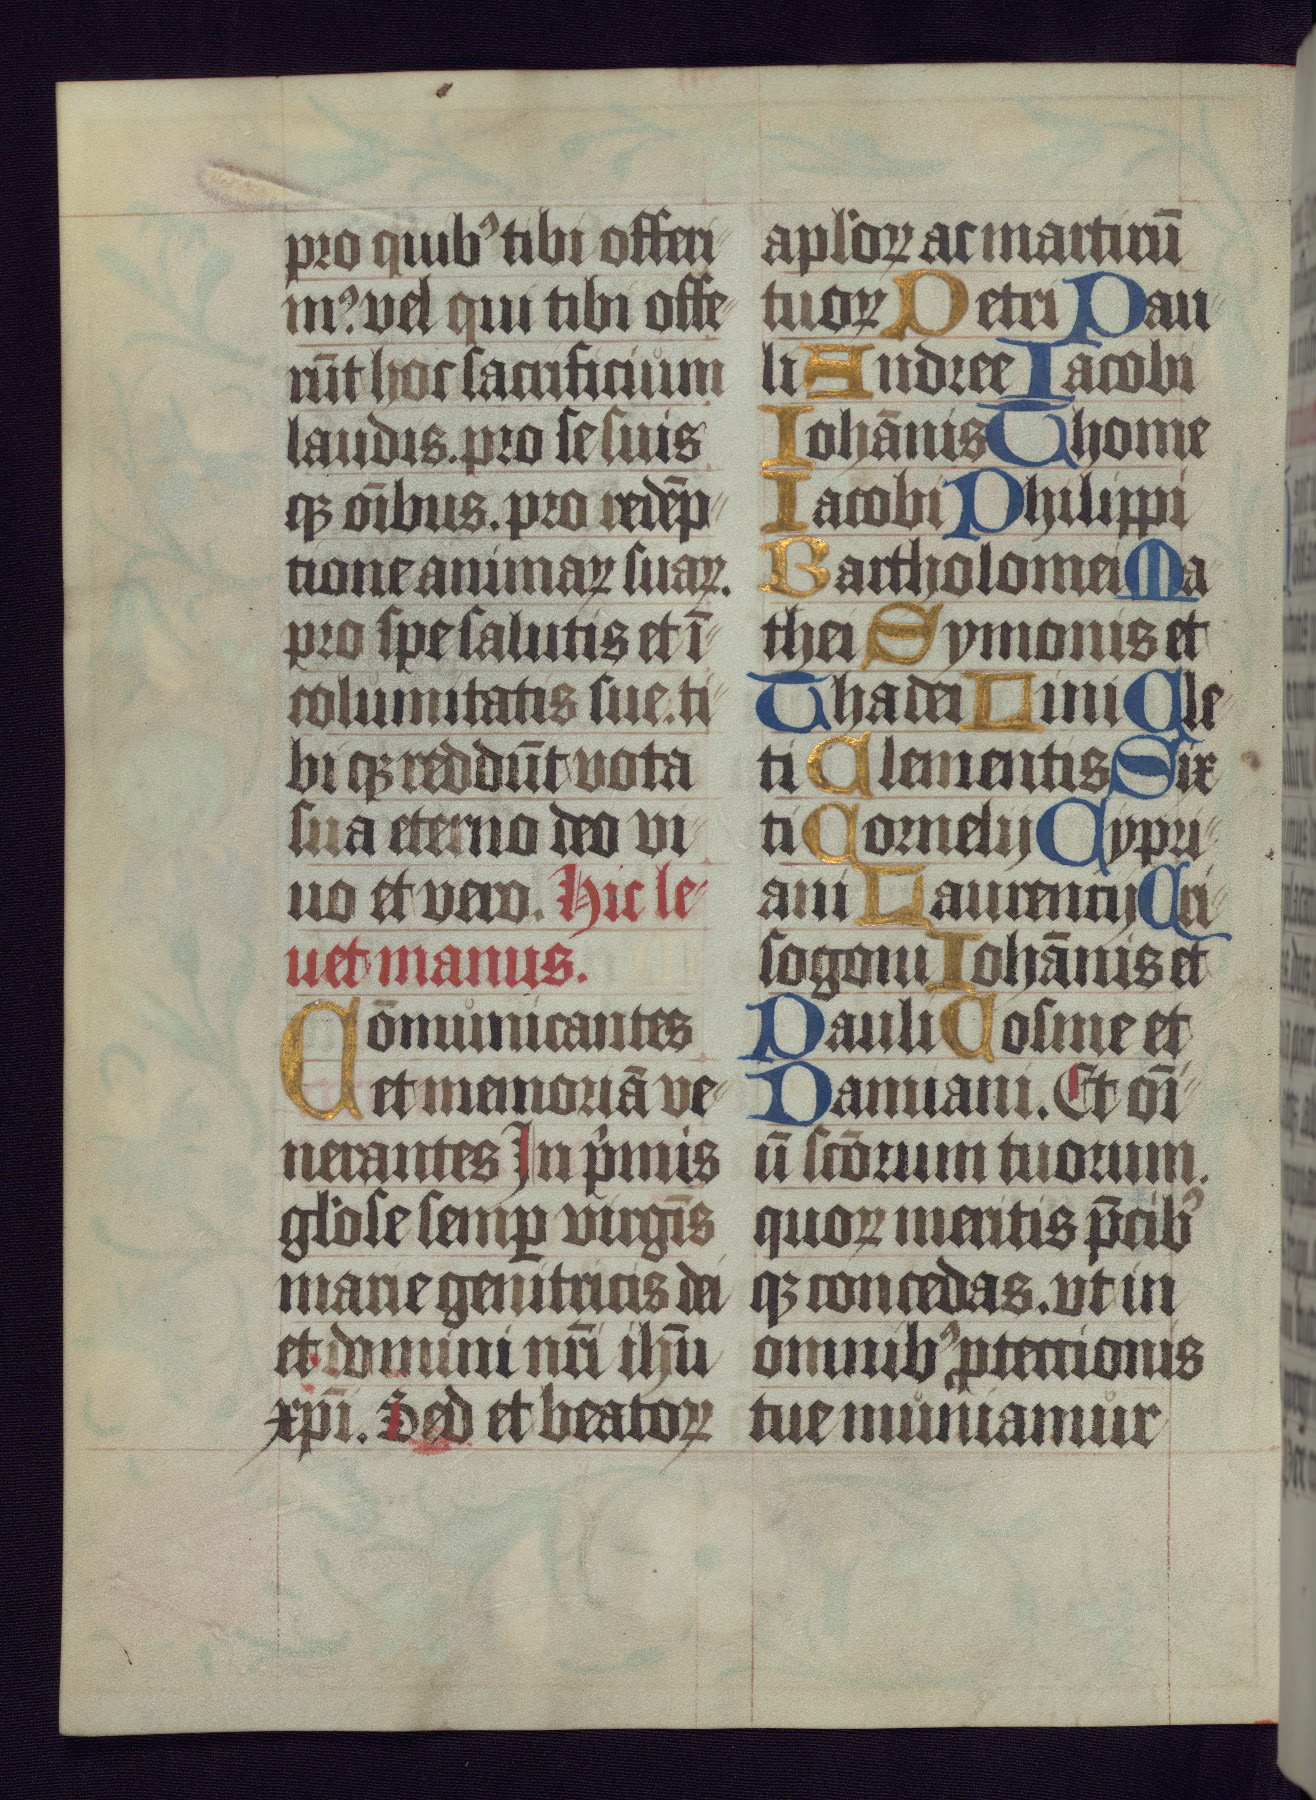 pro quibꝰ tibi offeri
mꝰ. vel qui tibi offe⸗
rūt hoc sacrificium
laudis. pro se suis
qꝫ oībus. pro redēp⸗
tione animaꝝ suaꝝ.
pro spe salutis et ī⸗
columitatis sue. ti⸗
bi qꝫ reddūt vota
sua eterno deo vi⸗
uo et vero. Hic le⸗
uet manus.
Cōmunicantes
et memoriā ve⸗
nerantes In p̄mis
gl'ose semꝑ virgīs
marie genitricis dei
et domini nr̄i ihū
xp̄i. Sed et beatoꝝ
apl'oꝝ ac martirū
tuoꝝ Petri Pau⸗
li Andree Iacobi
Iohānis Thome
Iacobi Philippi
Bartholomei Ma
thei Symonis et
Thadei Lini Cle⸗
ti Clementis Six
ti Cornelij Cypri⸗
ani Laurencij Cri⸗
sogoni Iohānis et
Pauli Cosme et
Damiani. Et oī⸗
ū scōrum tuorum.
quoꝝ meritis p̄cibꝰ
qꝫ concedas. vt in
omnibꝰ ꝓtectionis
tue muniamur